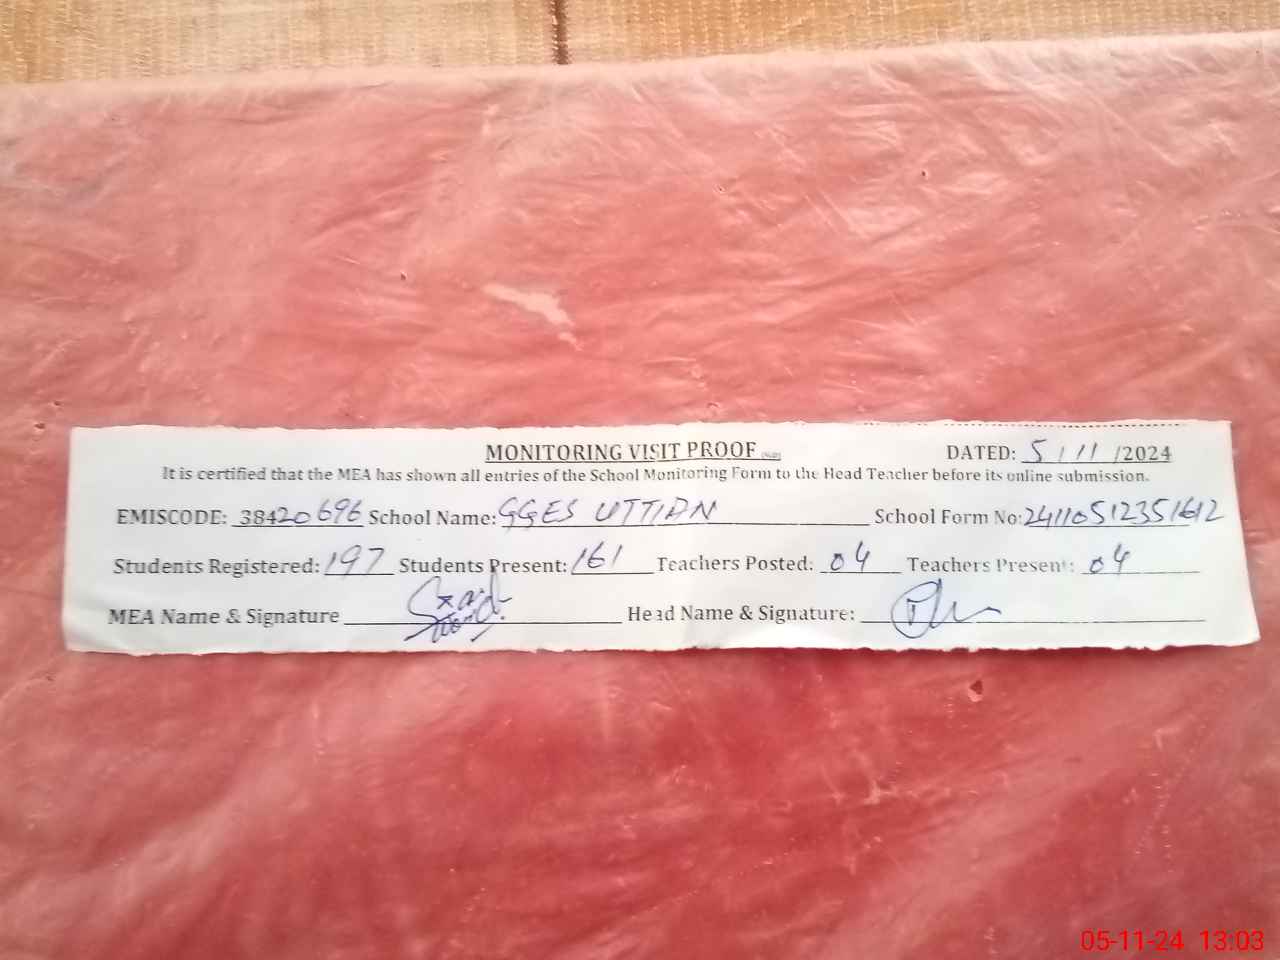 MONITORING VISIT PROOF DATED: 5/11/2024
It is certified that the MEA has shown all entries of the School Monitoring Form to the Head Teacher before its online submission.
EMISCODE: 38420696 School Name: GGES UTTIAN School Form No: 24110512351612
Students Registered: 197 Students Present: 161 Teachers Posted: 04 Teachers Present: 04
MEA Name & Signature Head Name & Signature:
05-11-24 13:03